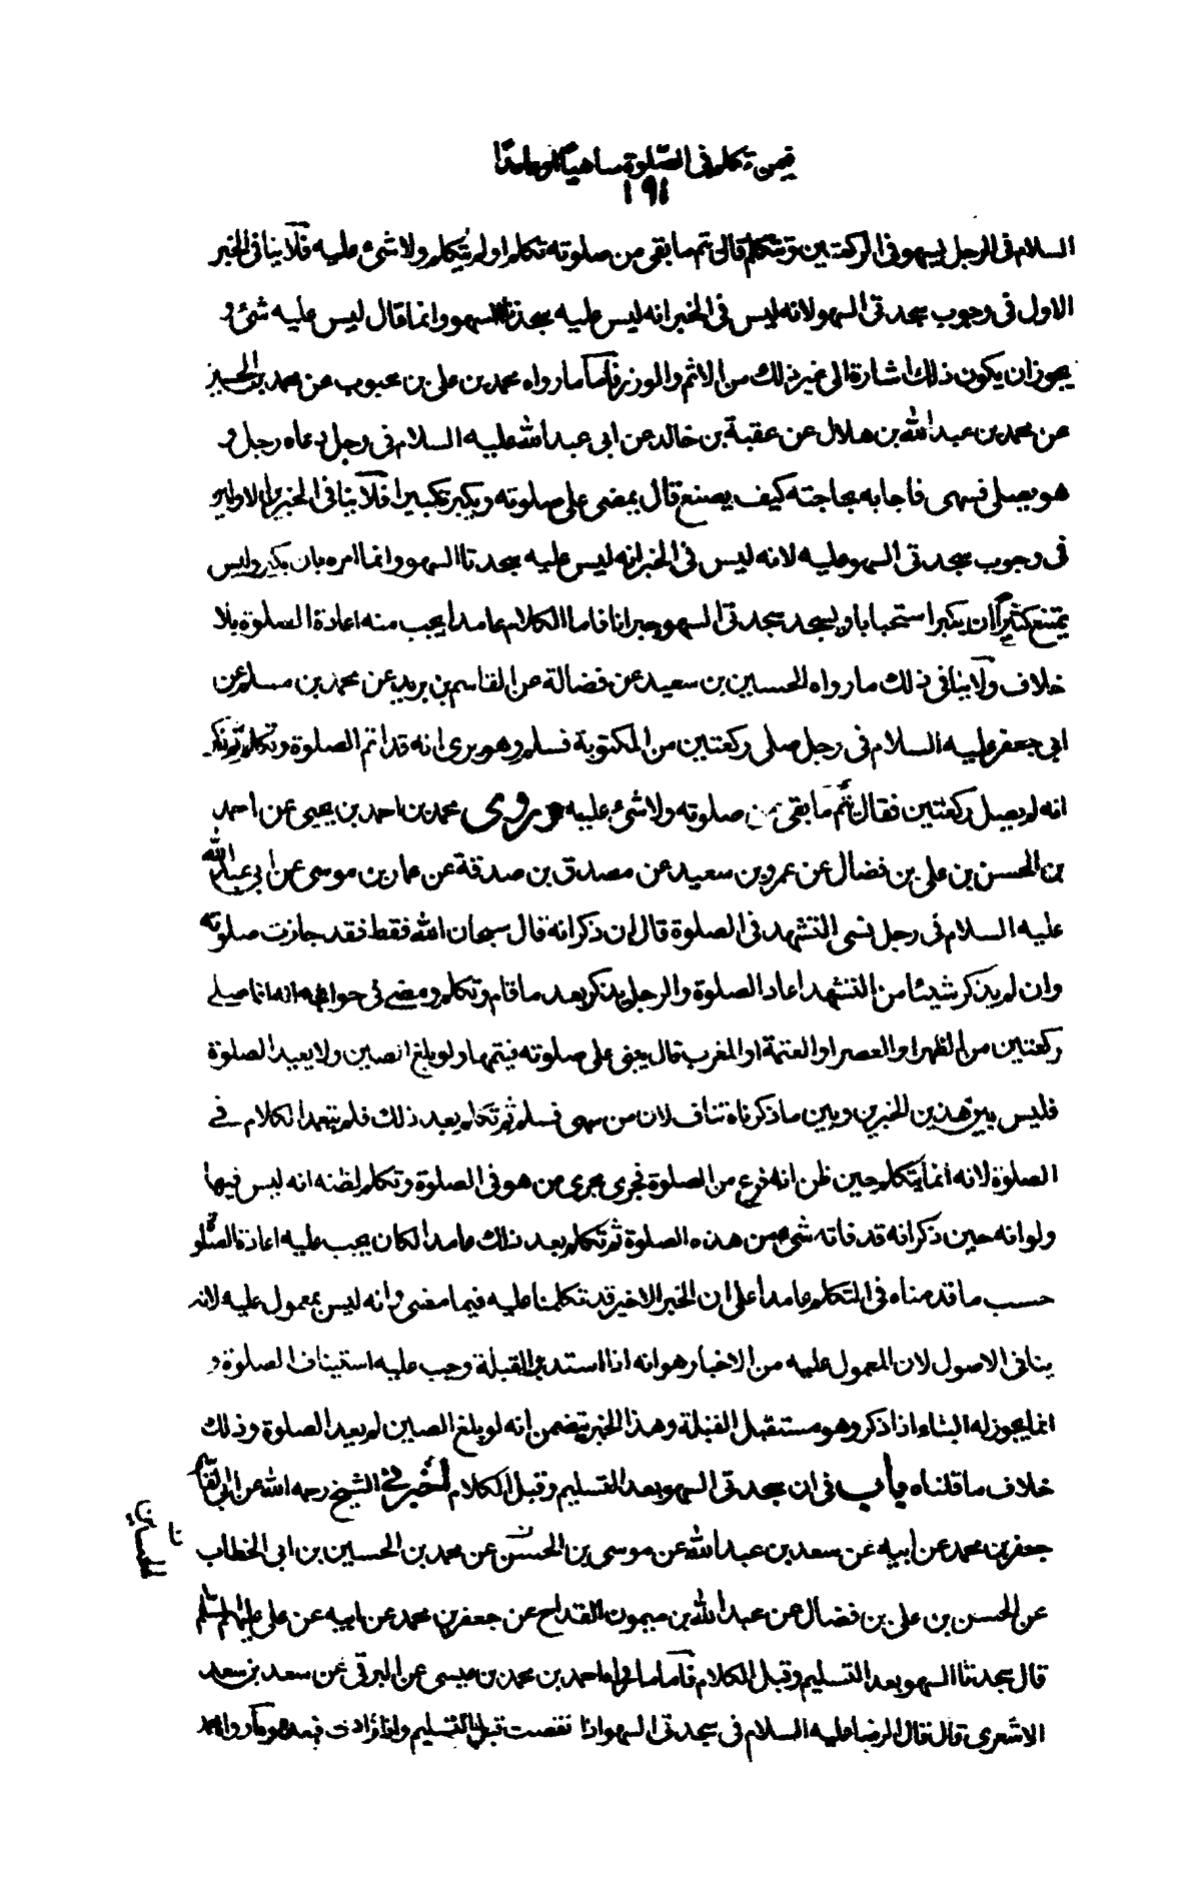 فيمن تكلم في الصلوة ساهيًا او عامدًا
١٩١
السلام في الرجل يسهو في الركعتين ويتكلم قال يتم ما بقى من صلوته تكلم او لم يتكلم ولا شئ عليه فلا ينافي الخبر
الاول في وجوب سجدتي السهو لانه ليس في الخبر انه ليس عليه سجدتا السهو وانما قال ليس عليه شئ و
يجوز ان يكون ذلك اشارة الى غير ذلك من الاثم والوزر فاما ما رواه محمد بن علي بن محبوب عن محمد بن الحسين
عن محمد بن عبد الله بن هلال عن عقبة بن خالد عن ابي عبد الله عليه السلام في رجل دعاه رجل و
هو يصلي فسهى فاجابه بحاجته كيف يصنع قال يمضى على صلوته ويكبر تكبيرا فلا ينافي الخبرين الاولين
في وجوب سجدتي السهو عليه لانه ليس في الخبر انه ليس عليه سجدتا السهو وانما امره بان يكبر وليس
يمتنع ان يكبر استحبابا ويسجد سجدتي السهو جبرانا فاما الكلام عامدا يجب منه اعادة الصلوة بلا
خلاف ولا ينافي ذلك ما رواه الحسين بن سعيد عن فضالة عن القاسم بن بريد عن محمد بن مسلم عن
ابي جعفر عليه السلام في رجل صلى ركعتين من المكتوبة فسلم وهو يرى انه قد اتم الصلوة وتكلم ثم ذكر
انه لم يصل ركعتين فقال يتم ما بقى من صلوته ولا شئ عليه وروى محمد بن احمد بن يحيى عن احمد
بن الحسن بن علي بن فضال عن عمرو بن سعيد عن مصدق بن صدقة عن عمار بن موسى عن ابي عبد الله
عليه السلام في رجل نسى التشهد في الصلوة قال ان ذكر انه قال سبحان الله فقط فقد جازت صلوته
وان لم يذكر شيئا من التشهد اعاد الصلوة والرجل يذكر بعد ما قام وتكلم ومضى في حوائجه انه انما صلى
ركعتين من الظهر او العصر او العتمة او المغرب قال يبنى على صلوته فيتمها ولو بلغ الصين ولا يعيد الصلوة
فليس بين هذين الخبرين وبين ما ذكرناه تناف لان من سهى فسلم ثم تكلم بعد ذلك فلم يتعمد الكلام في
الصلوة لانه انما يتكلم حين ظن انه فرغ من الصلوة فجرى مجرى من هو في الصلوة وتكلم لظنه انه ليس فيها
ولو انه حين ذكر انه قد فاته شئ من هذه الصلوة ثم تكلم بعد ذلك عامدا لكان يجب عليه اعادة الصلوة
حسب ما قدمناه في التكلم عامدا على ان الخبر الاخير قد تكلمنا عليه فيما مضى وانه ليس بمعمول عليه لانه
ينافي الاصول لان المعمول عليه من الاخبار هو انه اذا استدبر القبلة وجب عليه استيناف الصلوة و
انما يجوز له البناء اذا ذكر وهو مستقبل القبلة وهذا الخبر يتضمن انه لو بلغ الصين لم يعد الصلوة وذلك
خلاف ما قلناه باب في ان سجدتي السهو بعد التسليم وقبل الكلام اخبرني الشيخ رحمه الله عن ابي القاسم
جعفر بن محمد عن ابيه عن سعد بن عبد الله عن موسى بن الحسن عن محمد بن الحسين بن ابي الخطاب
عن الحسن بن علي بن فضال عن عبد الله بن ميمون القداح عن جعفر بن محمد عن ابيه عن علي عليهم السلام
قال سجدتا السهو بعد التسليم وقبل الكلام فاما ما رواه احمد بن محمد بن عيسى عن البرقي عن سعد بن سعد
الاشعري قال قال الرضا عليه السلام في سجدتي السهو اذا نقصت قبل التسليم واذا زادت فبعده وما رواه محمد